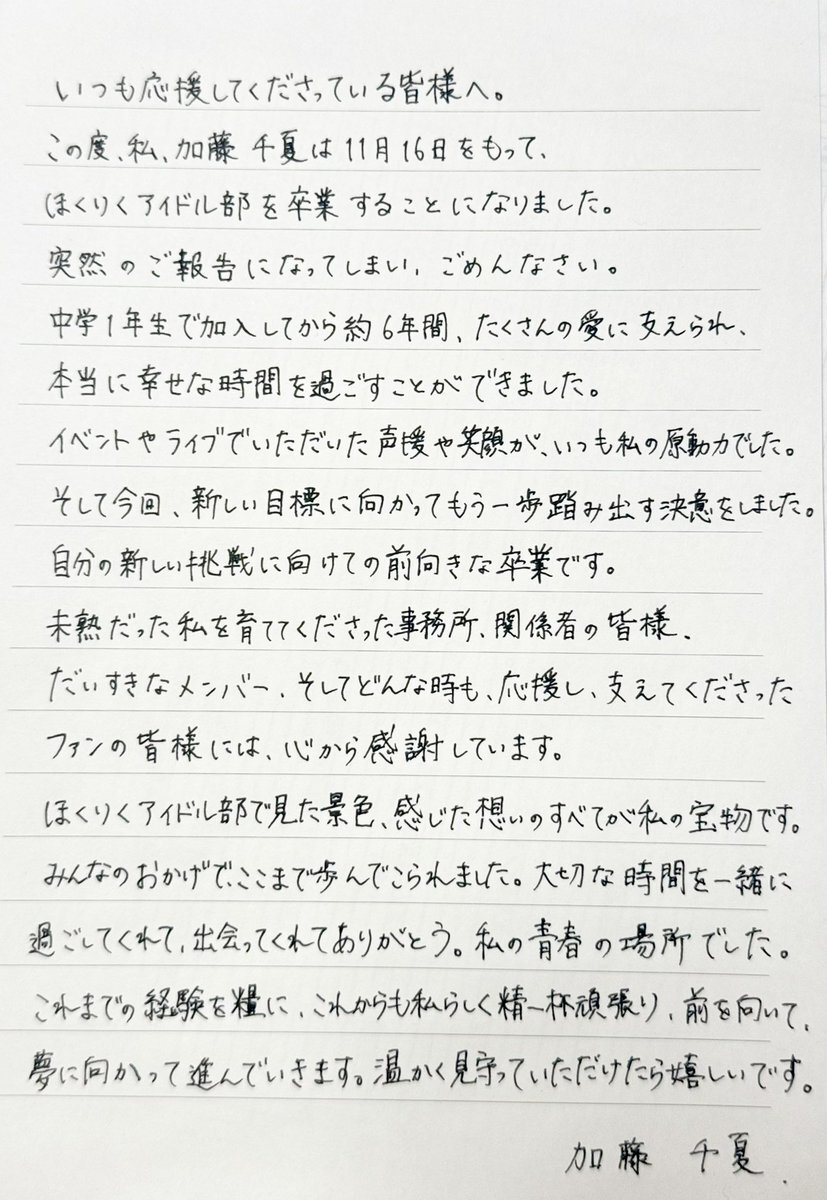 いつも応援してくださっている皆様へ。
この度、私、加藤 千夏は11月16日をもって、
ほくりくアイドル部を卒業することになりました。
突然のご報告になってしまい、ごめんなさい。
中学1年生で加入してから約6年間、たくさんの愛に支えられ、
本当に幸せな時間を過ごすことができました。
イベントやライブでいただいた声援や笑顔が、いつも私の原動力でした。
そして今回、新しい目標に向かってもう一歩踏み出す決意をしました。
自分の新しい挑戦に向けての前向きな卒業です。
未熟だった私を育ててくださった事務所、関係者の皆様、
だいすきなメンバー、そしてどんな時も、応援し、支えてくださった
ファンの皆様には、心から感謝しています。
ほくりくアイドル部で見た景色、感じた想いのすべてが私の宝物です。
みんなのおかげで、ここまで歩んでこられました。大切な時間を一緒に
過ごしてくれて、出会ってくれてありがとう。私の青春の場所でした。
これまでの経験を糧に、これからも私らしく精一杯頑張り、前を向いて、
夢に向かって進んでいきます。温かく見守っていただけたら嬉しいです。
加藤 千夏